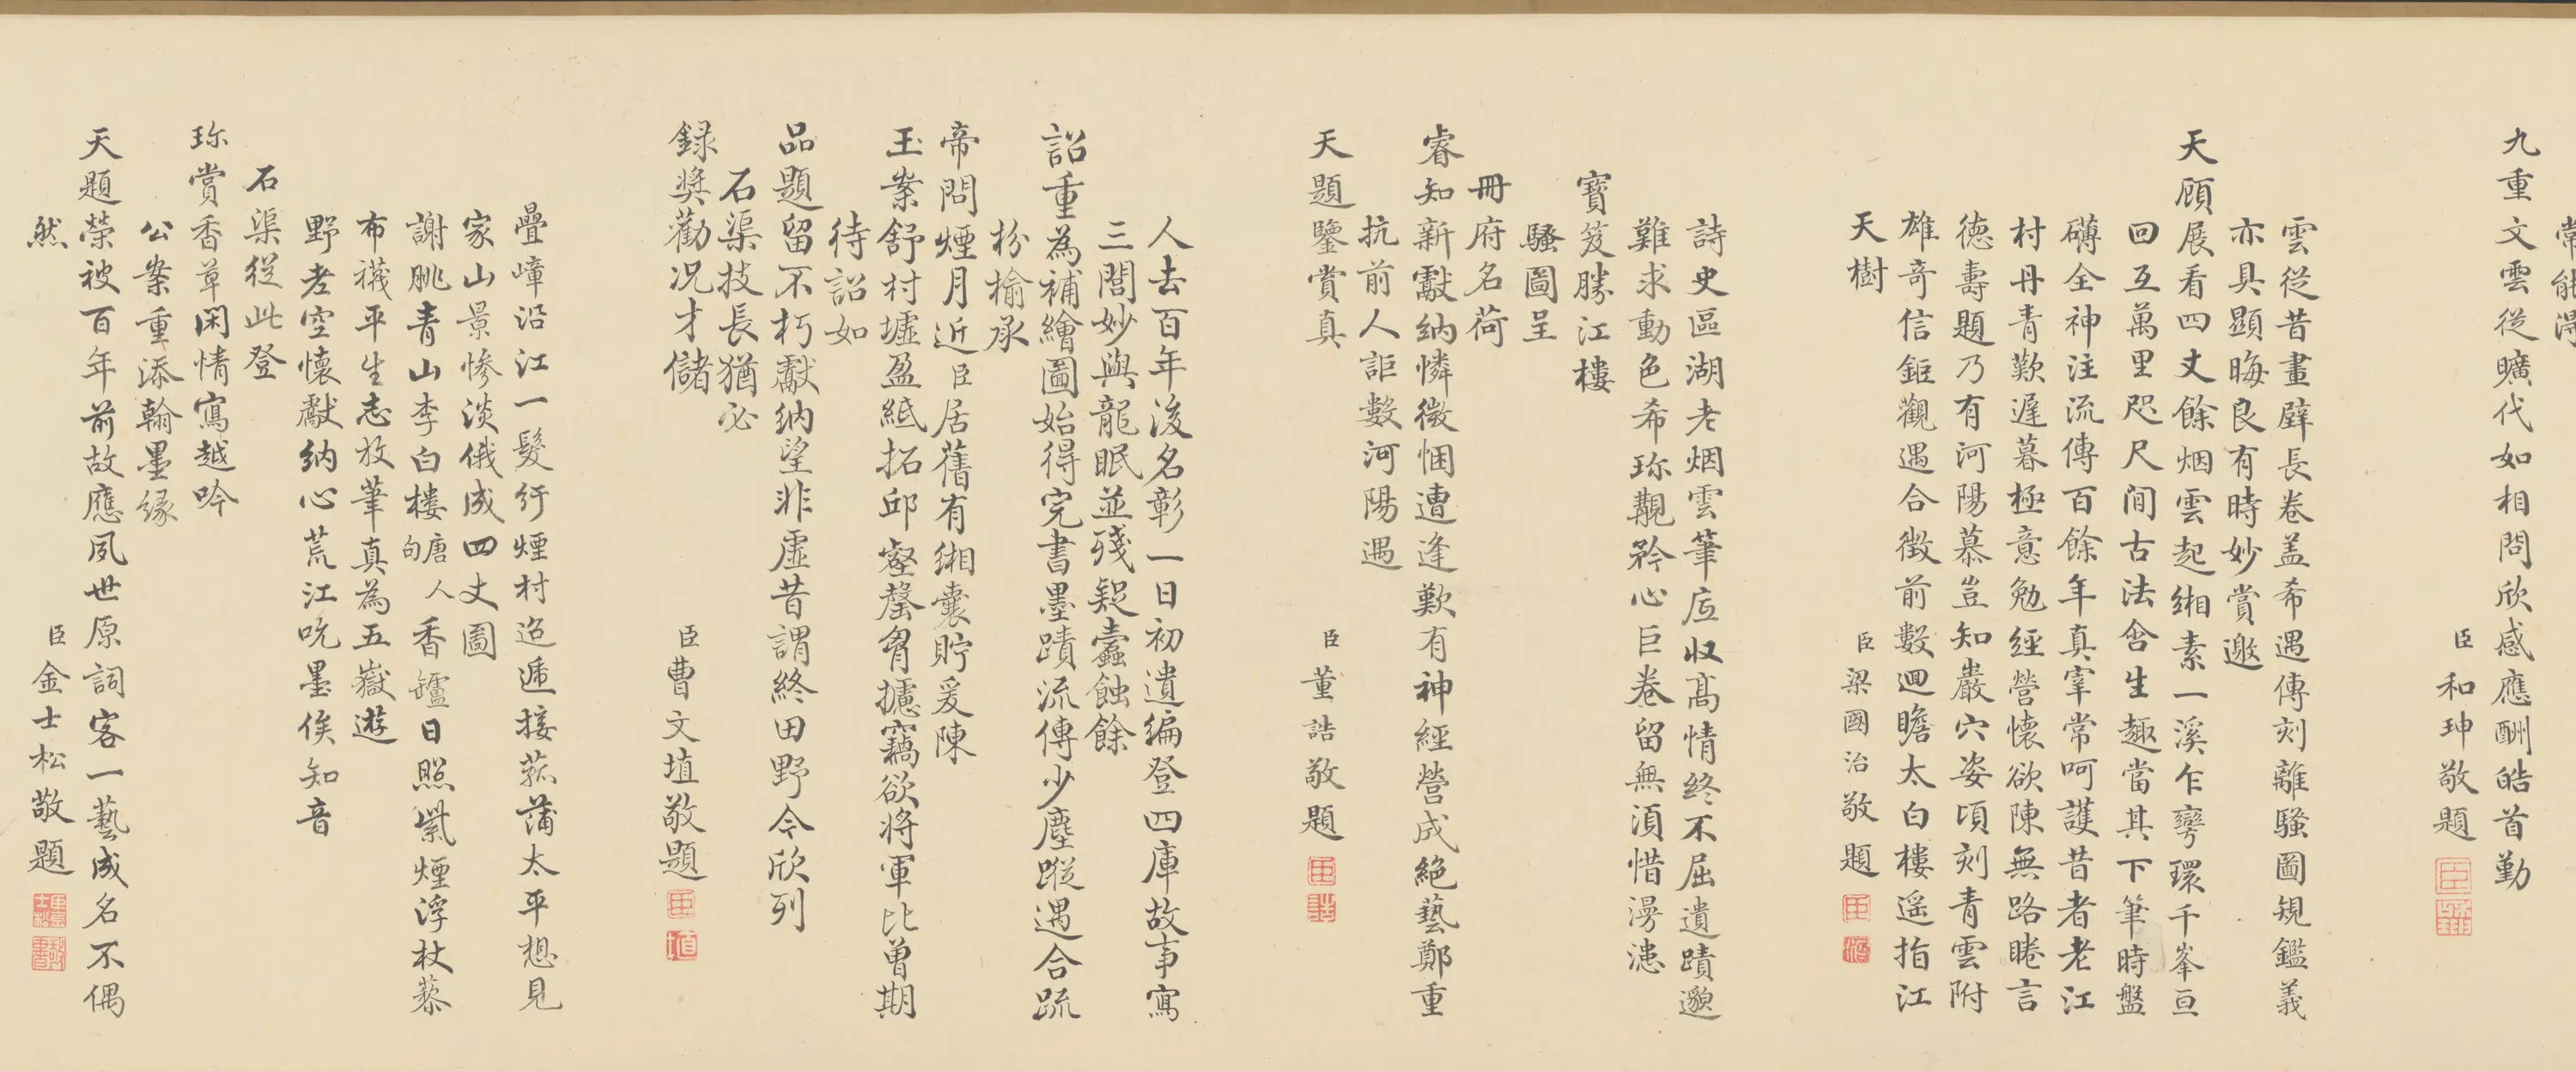 常能得
九重文雲從曠代如相問欣感應酬皓首勤
臣和珅敬題
雲從昔畫壁長卷盖希遇傳刻離騷圖規鑑義
亦具顯晦良有時妙賞邀
天顧展看四丈餘烟雲起緗素一溪乍彎環千峯亘
回互萬里咫尺間古法含生趣當其下筆時盤
礴全神注流傳百餘年真宰常呵護昔者老江
村丹青歎遲暮極意勉經營懷欲陳無路睠言
德壽題乃有河陽慕豈知巖穴姿頃刻青雲附
雄奇信鉅觀遇合徴前數迴瞻太白樓遥指江
天樹
臣梁國治敬題
詩史區湖老烟雲筆底収髙情終不屈遺蹟邈
難求動色希珎覯矜心巨卷留無湏惜漫漶
寶笈勝江樓
騷圖呈
冊府名荷
睿知新獻納憐微悃遭逢歎有神經營成絶藝鄭重
抗前人詎數河陽遇
天題鑒賞真
臣董誥敬題
人去百年後名彰一日初遺编登四庫故事寫
三閭妙與龍眠並殘疑蠹蝕餘
詔重為補繪圖始得完書墨蹟流傳少塵蹤遇合疏
枌榆承
帝問煙月近臣居舊有緗囊貯爰陳
玉案舒村墟盈紙拓邱壑罄胷攄竊欲将軍比曽期
待詔如
品題留不朽獻納望非虛昔謂終田野今欣列
石渠技長猶必
録奨勸况才儲
臣曹文埴敬題
疊嶂沿江一髮行煙村迢遞接菰蒲太平想見
家山景惨淡俄成四丈圖
謝脁青山李白樓唐人句香鑪日照紫煙浮杖藜
布襪平生志放筆真為五嶽遊
野老空懷獻納心荒江吮墨俟知音
石渠從此登
珎賞香草閑情寫越吟
公案重添翰墨緣
天題榮被百年前故應夙世原詞客一藝成名不偶
然
臣金士松敬題